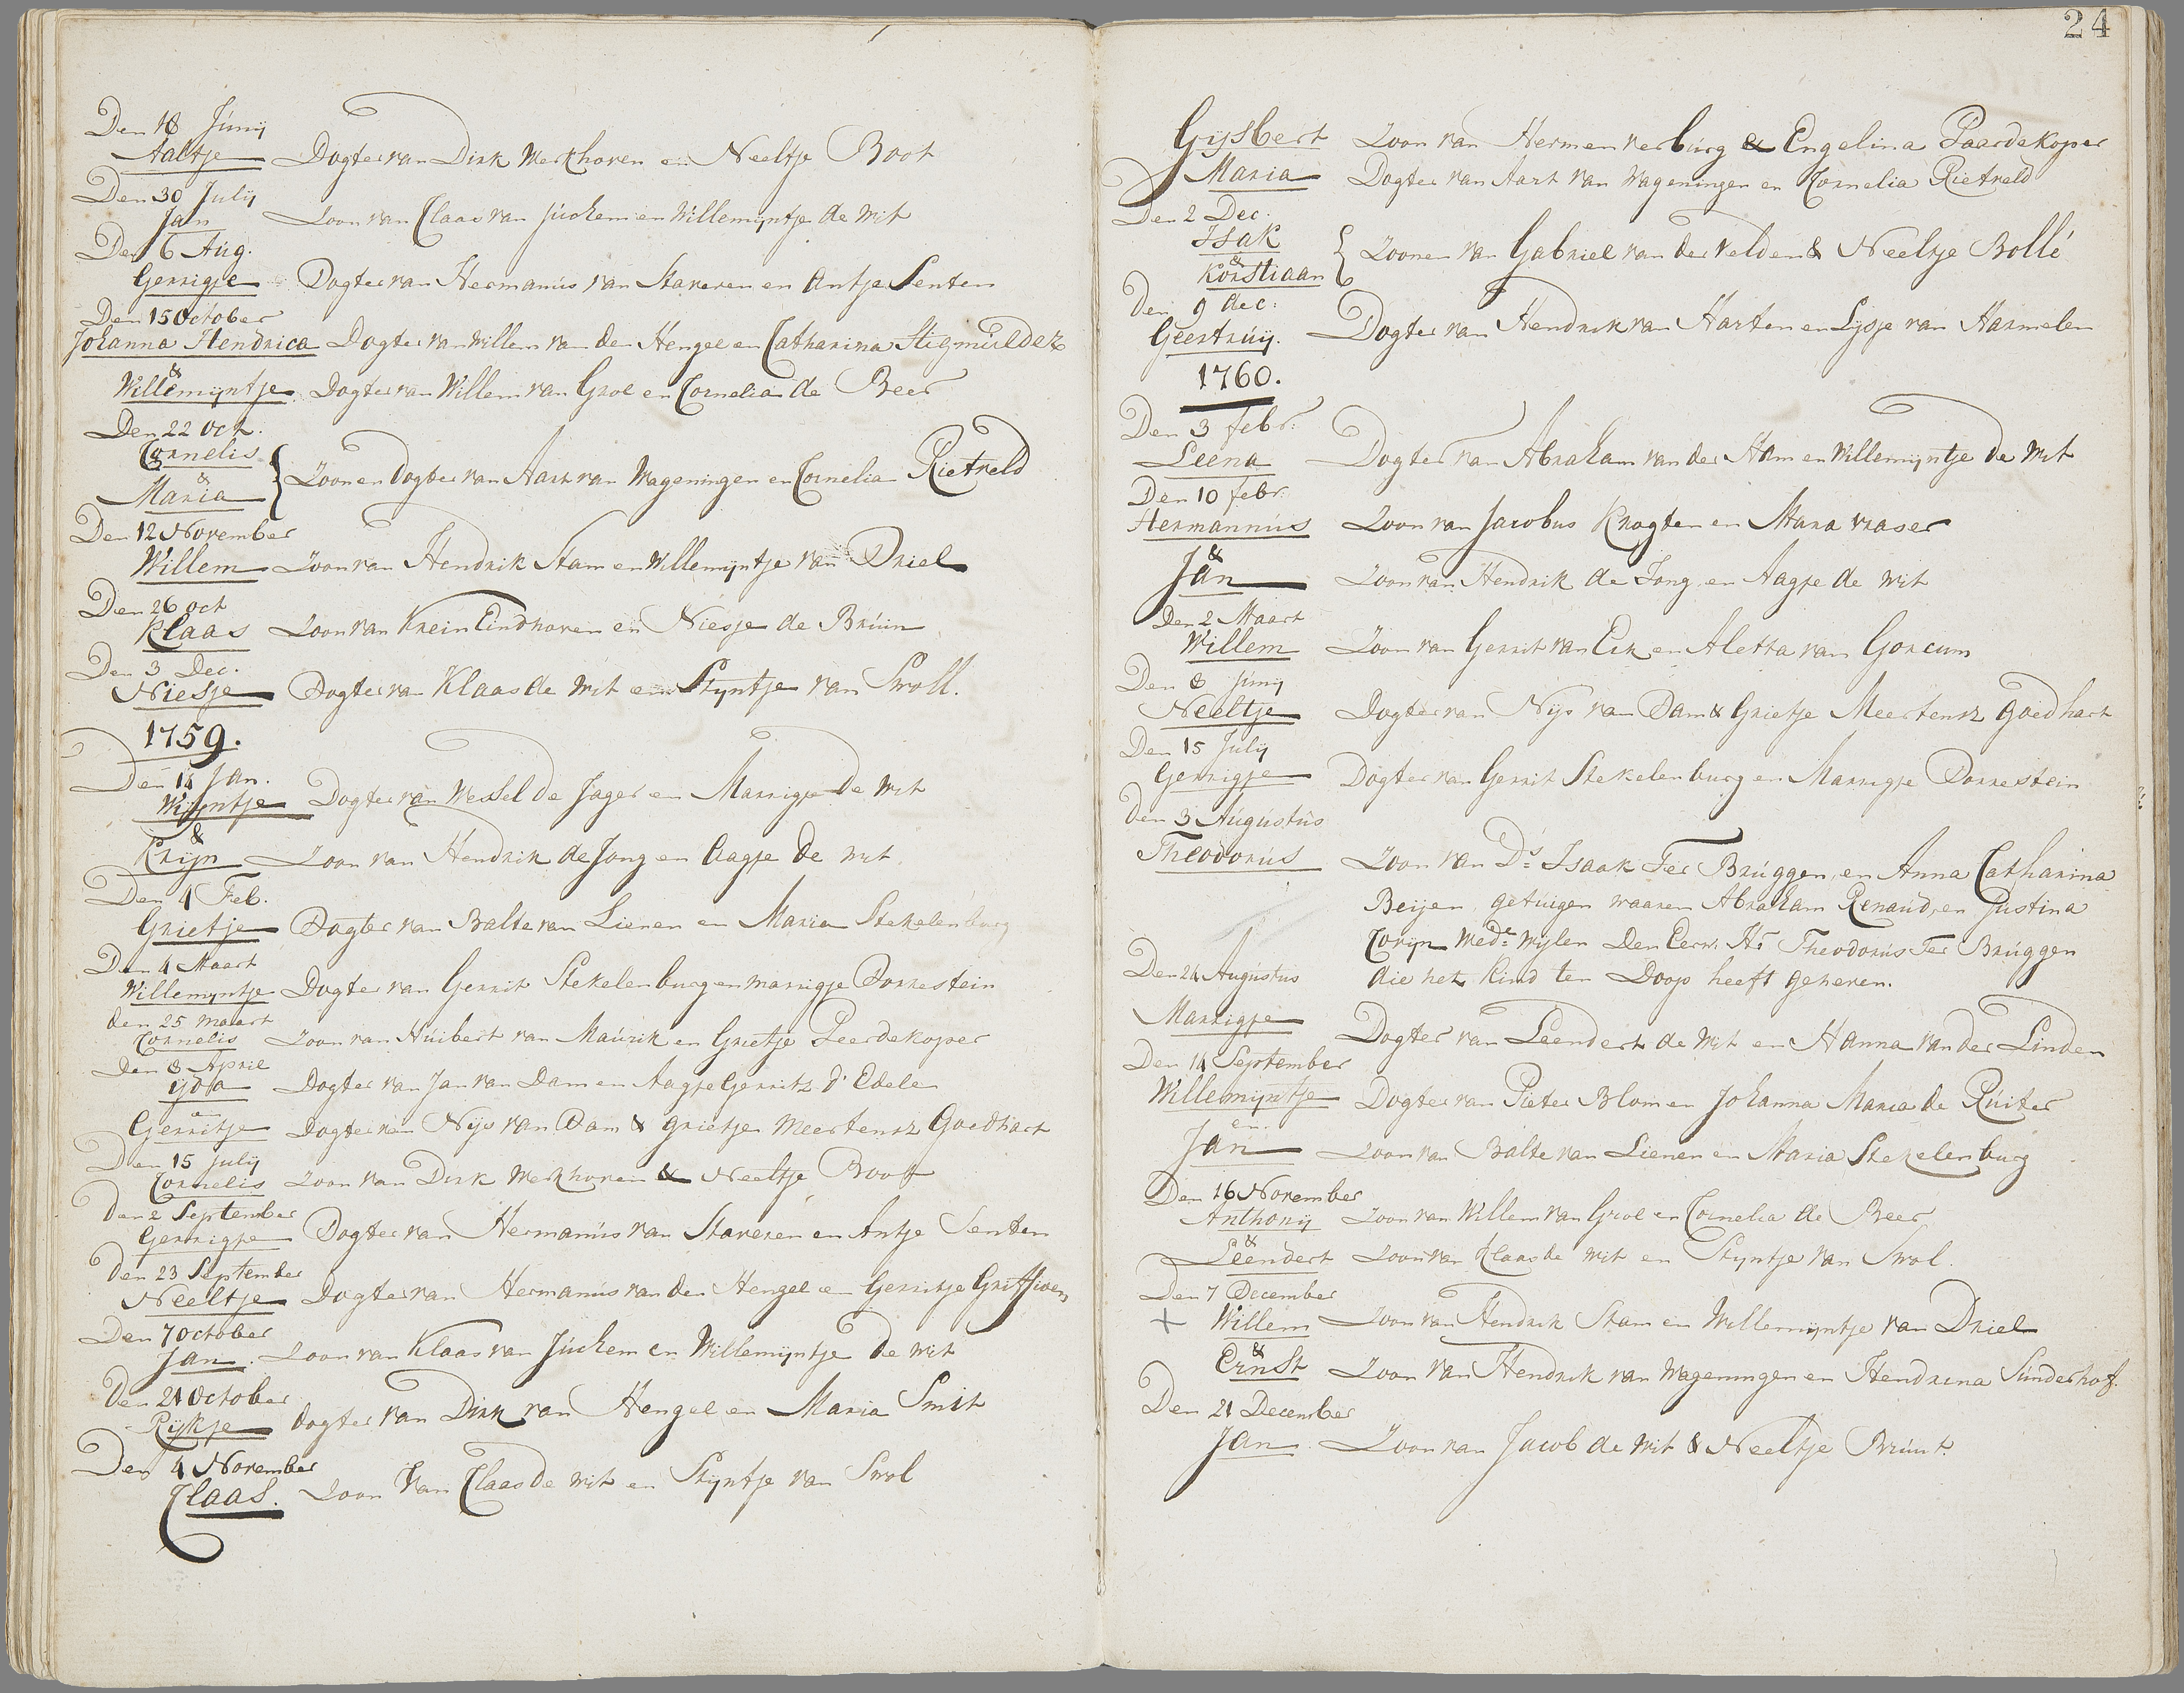 Den 18 Junij
Aaltje Dogter van Dirk Merkhoven en Neeltje Boot
Den 30 Julij
Jan Zoon van Claas van Juchem en Willemijntje de Wit
Den 6 Aug.
Gerrigje Dogter van Hermanus van Staveren en Antje Senten
Den 15 October
Johanna Hendrica Dogter van Willem van den Hengel en Catharina Stigmulder
&
Willemijntje Dogter van Willem van Grol en Cornelia de Beer
Den 22 Oct.
Cornelis
&
Maria
{ Zoon en Dogter van Aart van Wageningen en Cornelia Rietveld
Den 12 November
Willem Zoon van Hendrik Stam en Willemijntje van Driel
Den 26 oct
Klaas Zoon van Krein Eindhoven en Niesje de Bruin
Den 3 Dec.
Niesje Dogter van Klaas de Wit en Stijntje van Swoll.
1759.
Den 14 Jan.
Wijntje Dogter van Wessel de Jager en Marrigje de Wit
&
Krijn Zoon van Hendrik de Jong en Aagje de Wit
Den 4 Feb.
Grietje Dogter van Balte van Lienen en Maria Stekelenburg
Den 4 Maart
Willemijntje Dogter van Gerrit Stekelenburg en Marrigje Dorrestein
den 25 maart
Cornelis Zoon van Huibert van Maurik en Grietje Peerdekoper
Den 8 April
Yda Dogter van Jan van Dam en Aagje Gerrits d' Edele
en
Gerritje Dogter van Nijs van Dam & Grietje Meertensz Goedhart
Den 15 julij
Cornelis Zoon van Dirk Merkhoven & Neeltje Boot
Den 2 September
Gerrigje Dogter van Hermanus van Staveren en Antje Senten
den 23 September
Neeltje Dogter van Hermanus van den Hengel en Gerritje
Den 7 October
Jan. Zoon van Klaas van Juchem en Willemijntje de Wit
Den 21 October
Rijkje dogter van Dirk van Hengel en Maria Smit
Den 4 November
Claas. Zoon van Claas de Wit en Stijntje van Swol
24
Gijsbert Zoon van Hermen verburg & Engelina Paardekoper
Maria Dogter van Aart van Wageningen en Cornelia Rietveld
Den 2 Dec.
Isak
&
Korstiaan
{ Zoonen van Gabriel van der Velden & Neeltje Bollé
Den 9 dec:
Geertruij. Dogter van Hendrik van Harten en Lijsje van Harmelen
1760.
Den 3 febr:
Leena Dogter van Abraham van der Ham en Willemijntje de Wit
Den 10 febr.
Hermannus Zoon van Jacobus Knogten en Mara vraser
&
Jan Zoon van Hendrik de Jong en Aagje de Wit
Den 2 Maart
Willem Zoon van Gerrit van Eck en Aletta van Gorcum
Den 8 Junij
Neeltje Dogter van Nijs van Dam & Grietje Meertensz Goedhart
Den 15 Julij
Gerrigje Dogter van Gerrit Stekelenburg en Marrigje Dorrestein
Den 3 Augustus
Theodorus Zoon van Ds Isaak Ter Bruggen, en Anna Catharina
Beijen, getuigen waaren Abraham Renaud, en Justina
Corijn Wede: Wijlen Den Eerw. Hr Theodorus Ter Bruggen
die het kind ten Doop heeft geheven.
Den 24 Augustus
Marrigje Dogter van Leendert de Wit en Hanna van der Linden
Den 14 September
Willemijntje Dogter van Pieter Blom en Johanna Maria de Ruiter
en.
Jan Zoon van Balte van Lienen en Maria Stekelenburg
Den 16 November
Anthonij Zoon van Willem van Grol en Cornelia de Beer
&
Leendert Zoon van Klaas de Wit en Stijntje van Swol.
Den 7 December
+ Willem Zoon van Hendrik Stam en Willemijntje van Driel
&
Ernst Zoon van Hendrik van Wageningen en Hendrina Sunderhof.
Den 21 December
Jan Zoon van Jacob de Wit & Neeltje Bruint